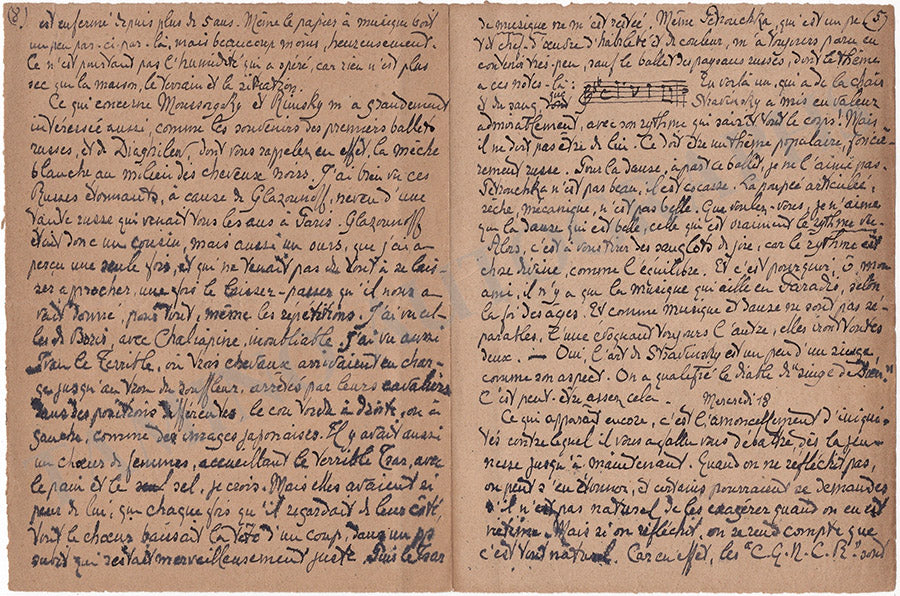 (8)
est enfermé depuis plus de 5 ans. Même le papier à musique boit
un peu par-ci par-là, mais beaucoup moins, heureusement.
Ce n'est pourtant pas l'humidité qui a opéré, car rien n'est plus
sec que la maison, le terrain et la situation.
Ce qui concerne Moussorgsky et Rimsky m'a grandement
intéressé aussi, comme les souvenirs des premiers ballets
russes, et de Diaghilew, dont vous rappelez en effet, la mèche
blanche au milieu des cheveux noirs. J'ai bien vu ces
Russes étonnants, à cause de Glazounoff, neveu d'une
tante russe qui venait tous les ans à Paris. Glazounoff
était donc un cousin, mais aussi un ours, que j'ai a-
perçu une seule fois, et qui ne tenait pas du tout à se lais-
ser approcher, une fois le laissez-passer qu'il nous a-
vait donné, pour tout, même les répétitions. J'ai vu cel-
les de Boris, avec Chaliapine, inoubliable. J'ai vu aussi
Ivan le Terrible, où trois chevaux arrivaient en char-
ge jusqu'au trou du souffleur, arrêtés par leurs cavaliers
dans des positions différentes, le cou tordu à droite, ou à
gauche, comme des images japonaises. Il y avait aussi
un chœur de femmes, accueillant le terrible Tsar, avec
le pain et le sel, je crois. Mais elles avaient si
peur de lui, que chaque fois qu'il regardait de leur côté,
tout le chœur baissait la tête d'un coup, dans un pp
subit qui restait merveilleusement juste. Puis le tsar
(5)
de musique ne m'est restée. Même Petrouchka, qui est un pe-
tit chef-d'œuvre d'habileté et de couleur, m'a toujours paru en
contenir très-peu, sauf le ballet des paysans russes, dont le thème
a ces notes-là : En voilà un, qui a de la chair
et du sang, que Stravinsky a mis en valeur
admirablement, avec son rythme qui saisit tout le corps ! Mais
il ne doit pas être de lui. Ce doit être un thème populaire, fonciè-
rement russe. Pour la danse, à part ce ballet, je ne l'aime pas.
Petrouchka n'est pas beau, il est cocasse. La poupée articulée,
rèche, mécanique, n'est pas belle. Que voulez-vous, je n'aime
que la danse qui est belle, celle qui est vraiment le rythme vu.
Alors, c'est à vous tirer des sanglots de joie, car le rythme est
chose divine, comme l'équilibre. Et c'est pourquoi, ô mon
ami, il n'y a que la musique qui aille en Paradis, selon
la foi des âges. Et comme musique et danse ne sont pas sé-
parables, l'une évoquant toujours l'autre, elles iront toutes
deux. — Oui, l'art de Stravinsky est un peu d'un singe,
comme son aspect. On a qualifié le diable de "singe de Dieu."
C'est peut-être assez cela. Mercredi 18
Ce qui apparaît encore, c'est l'amoncellement d'iniqui-
tés contre lequel il vous a fallu vous débattre dès la jeu-
nesse jusqu'à maintenant. Quand on ne réfléchit pas,
on peut s'en étonner, et certains pourraient se demander
s'il n'est pas naturel de les exagérer quand on en est
victime. Mais si on réfléchit, on se rend compte que
c'est tout naturel. Car en effet, les "C.G.N.C.R." sont